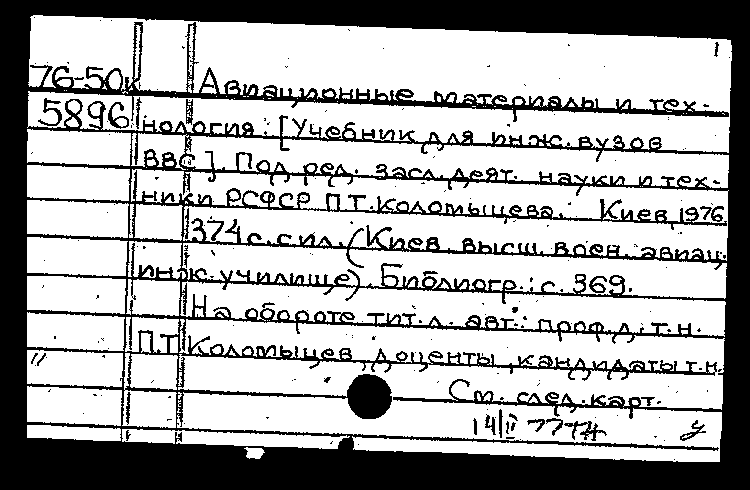 1
76-50к Авиационные материалы и тех-
5896 нология: [Учебник для инж. вузов
ВВС]. Под ред. засл. деят. науки и тех-
ники РСФСР П.Т. Коломыцева. Киев, 1976.
374 с. с ил. (Киев. высш. воен. авиац.
инж. училище). Библиогр.: с. 369.
На обороте тит. л. авт.: проф. д. т. н.
П.Т. Коломыцев, доценты, кандидаты т.н.
См. след. карт.
14/II